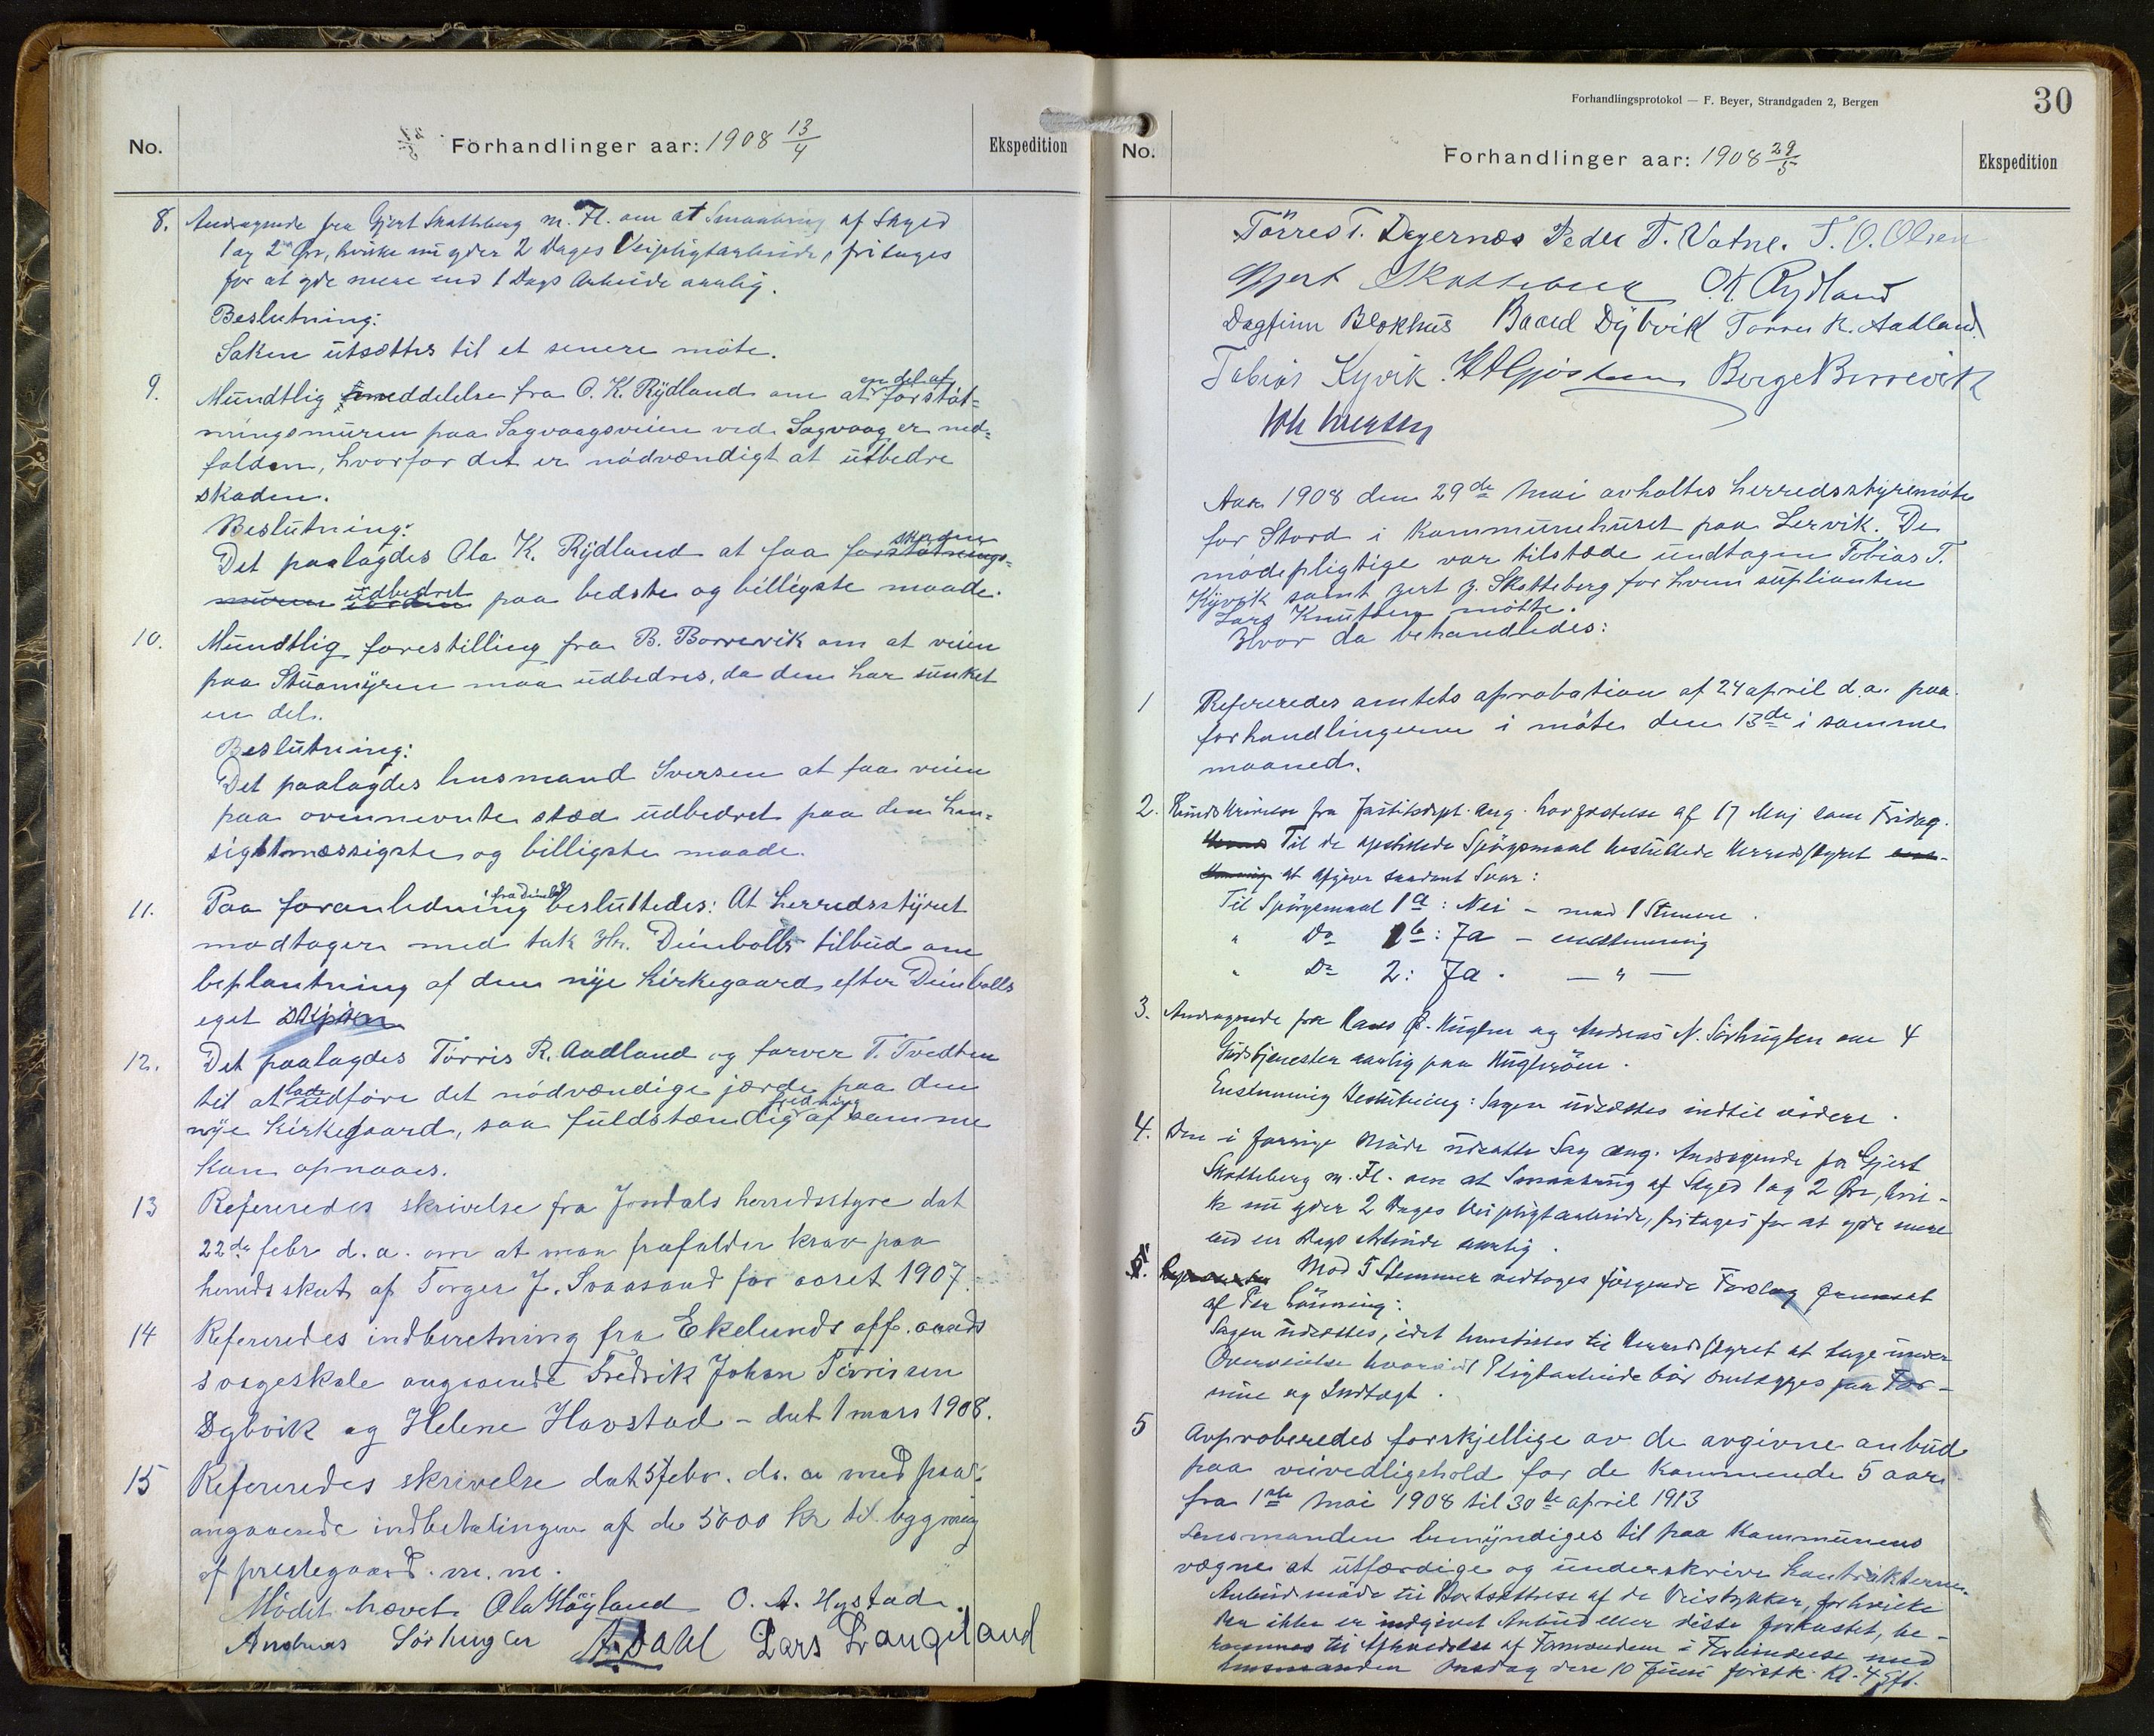 No. Forhandlinger aar: 1908 13/4 Ekspedition
8. Andragende fra Gjert Skatteberg m. Fl. om at Smaabrug af Skyld
1 og 2 Øre, hvilke nu yder 2 Dages Veipligtarbeide, fritages
for at yde mere end 1 Dags Arbeide aarlig.
Beslutning:
Saken utsættes til et senere møte.
9. Mundtlig meddelelse fra O. K. Rydland om at en del af forstøt-
ningsmuren paa Sagvaagsveien ved Sagvaag er ned-
falden, hvorfor det er nødvændigt at utbedre
skaden.
Beslutning:
Det paalagdes Ola K. Rydland at faa forstøtnings- skaden
muren udbedret paa bedste og billigste maade.
10. Mundtlig forestilling fra B. Borrevik om at veien
paa Stuamyren maa udbedres, da den har sunket
en del.
Beslutning:
Det paalagdes lensmand Iversen at faa veien
paa ovennevnte stæd udbedret paa den hen-
sigtsmæssigste og billigste maade.
11. Paa foranledning fra Deinboll besluttedes: At herredsstyret
modtager med tak Hr. Deinbolls tilbud om
beplantning af den nye kirkegaard efter Deinbolls
eget skjøn
12. Det paalagdes Tørris R. Aadland og farver T. Tvedten
til at lade udføre det nødvændige jærde paa den
nye kirkegaard, saa fuldstændig fredning af samme
kan opnaaes.
13 Refereredes skrivelse fra Jondals herredsstyre dat
22de febr d. a. om at man frafalder krav paa
herredsskat af Torger J. Svaasand for aaret 1907.
14 Refereredes indberetning fra Ekelunds off. aands
svageskole angaaende Fredrik Johan Tørrisen
Dybvik og Helene Havstad - dat 1 mars 1908.
15 Refereredes skrivelse dat 5 febr. d. a
angaaende indbetalingen af de 5000 kr til bygning
af prestegaard m. m.
Mødet hævet. Ola Høyland O. A. Hystad.
Andreas Sørhugler A. Dahl Lars Langeland
Forhandlingsprotokol — F. Beyer, Strandgaden 2, Bergen
30
No. Forhandlinger aar: 1908 29/5 Ekspedition
Törres T. Degernes Peder T. Vatne. T. O. Olsen
Gjert Skatteberg O. K. Rydland
Dagfinn Blokhus Baard Dybvik Torres R. Aadland
Tobias Kyvik. Børge Borrevik
Aar 1908 den 29de Mai avholtes herredsstyremøte
for Stord i kommunehuset paa Lervik. De
mødepligtige var tilstæde undtagen Tobias T.
Kyvik samt Gert G. Skatteberg for hvem suplianten
Lars Knutsen møtte.
Hvor da behandledes:
1 Refereredes amtets aprobation af 24 april d.a. paa
forhandlingerne i møte den 13de i samme
maaned.
2. Rundskrivelse fra Justitsdept. ang. høgtidelse af 17 Maj som Fridag.
Til de opstillede Spørgsmaal besluttede Herredsstyret
at afgive saadant Svar:
Til Spørgsmaal 1a: Nei - mod 1 Stemme.
" Do 1b: Ja - enstemmig
" Do 2: Ja. — " —
3. Andragende fra Hans Huglen og Andreas N. Sørhuglen om 4
Gudstjenester aarlig paa Huglerøen.
Enstemmig Beslutning: Sagen udsættes indtil videre.
4. Den i forrige Møde udsatte Sag ang. Andragende fra Gjert
Skatteberg m. Fl. om at Smaabrug af Skyld 1 og 2 Øre, hvil-
ke nu yder 2 Dages Veipligtarbeide, fritages for at yde mere
end en Dags Arbeide aarlig.
Mod 5 Stemmer vedtoges følgende Forslag fremsat
af Per Lønning:
Sagen udsættes, idet henstilles til Herredsstyret at tage under
Overveielse hvorvidt Pligtarbeide bør omlægges paa For-
mue og Indtægt.
5 Approberedes forskjellige av de avgivne anbud
paa veivedligehold for de kommende 5 aar
fra 1ste mai 1908 til 30te april 1913
Lensmanden bemyndiges til paa kommunens
vegne at utfærdige og underskrive kontrakterne.
Anbudsmøde til Bortsættelse af de Veistykker, for hvilke
der ikke er indgivet Anbud eller disse forkastet, be-
rammes til Afholdelse af Formanden i Forbindelse med
Lensmanden Onsdag den 10 Juni førstk. Kl. 4 Eft.